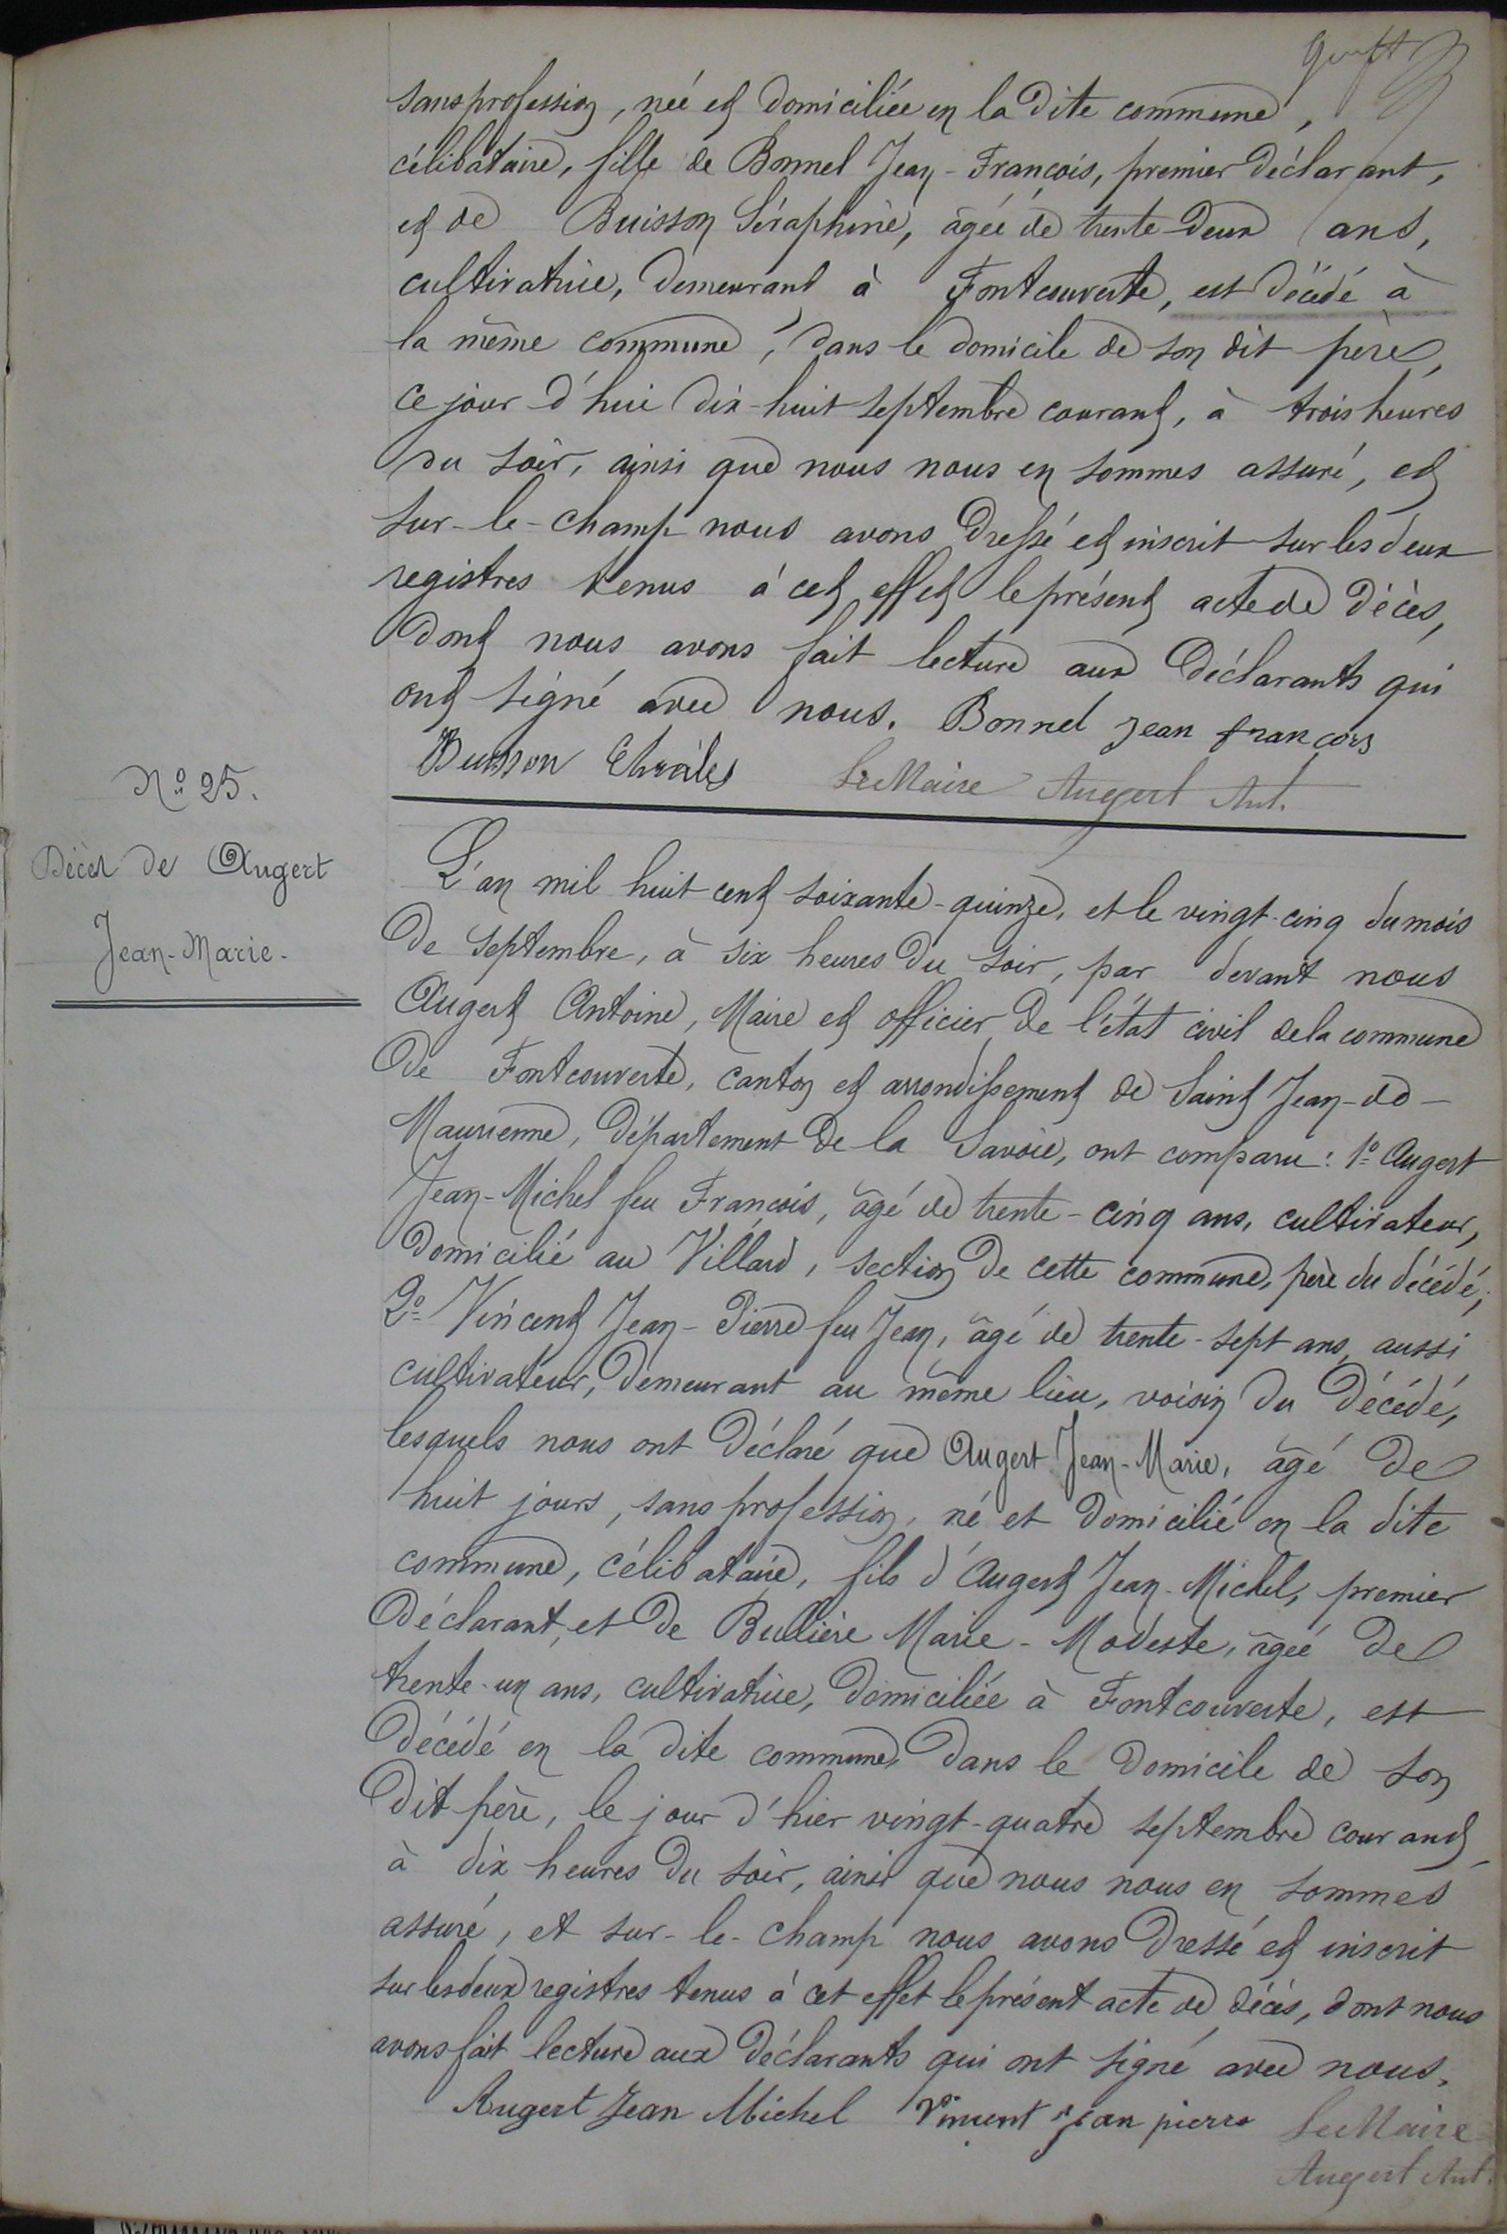 sans profession, née et domiciliée en la dite commune,
célibataire, fille de Bonnel Jean-François, premier déclarant,
et de Buisson Séraphine, âgée de trente-deux ans,
cultivatrice, demeurant à Fontcouverte, est décédé à
la même commune, dans le domicile de son dit père,
ce jour d'hui dix-huit septembre courant, à trois heures
du soir, ainsi que nous nous en sommes assuré, et
sur-le-champ nous avons dressé et inscrit sur les deux
registres tenus à cet effet le présent acte de décès,
dont nous avons fait lecture aux déclarants qui
ont signé avec nous. Bonnel jean françois
Buisson Le Maire Augert Ant.
N° 25.
Décès de Augert
Jean-Marie.
L'an mil huit cent soixante-quinze, et le vingt-cinq du mois
de septembre, à six heures du soir, par devant nous
Augert Antoine, Maire et officier de l'état civil de la commune
de Fontcouverte, canton et arrondissement de Saint Jean-de-
Maurienne, département de la Savoie, ont comparu: 1° Augert
Jean-Michel feu François, âgé de trente-cinq ans, cultivateur,
domicilié au Villard, section de cette commune, père du décédé;
2° Vincent Jean-Pierre feu Jean, âgé de trente-sept ans, aussi
cultivateur, demeurant au même lieu, voisin du décédé,
lesquels nous ont déclaré que Augert Jean-Marie, âgé de
huit jours, sans profession, né et domicilié en la dite
commune, célibataire, fils d'Augert Jean-Michel, premier
déclarant, et de Bullière Marie-Modeste, âgée de
trente-un ans, cultivatrice, domiciliée à Fontcouverte, est
décédé en la dite commune, dans le domicile de son
dit père, le jour d'hier vingt-quatre septembre courant,
à dix heures du soir, ainsi que nous nous en sommes
assuré, et sur-le-champ nous avons dressé et inscrit
sur les deux registres tenus à cet effet le présent acte de décès, dont nous
avons fait lecture aux déclarants qui ont signé avec nous.
Augert Jean Michel Vincent jean pierre Le Maire
Augert Ant.